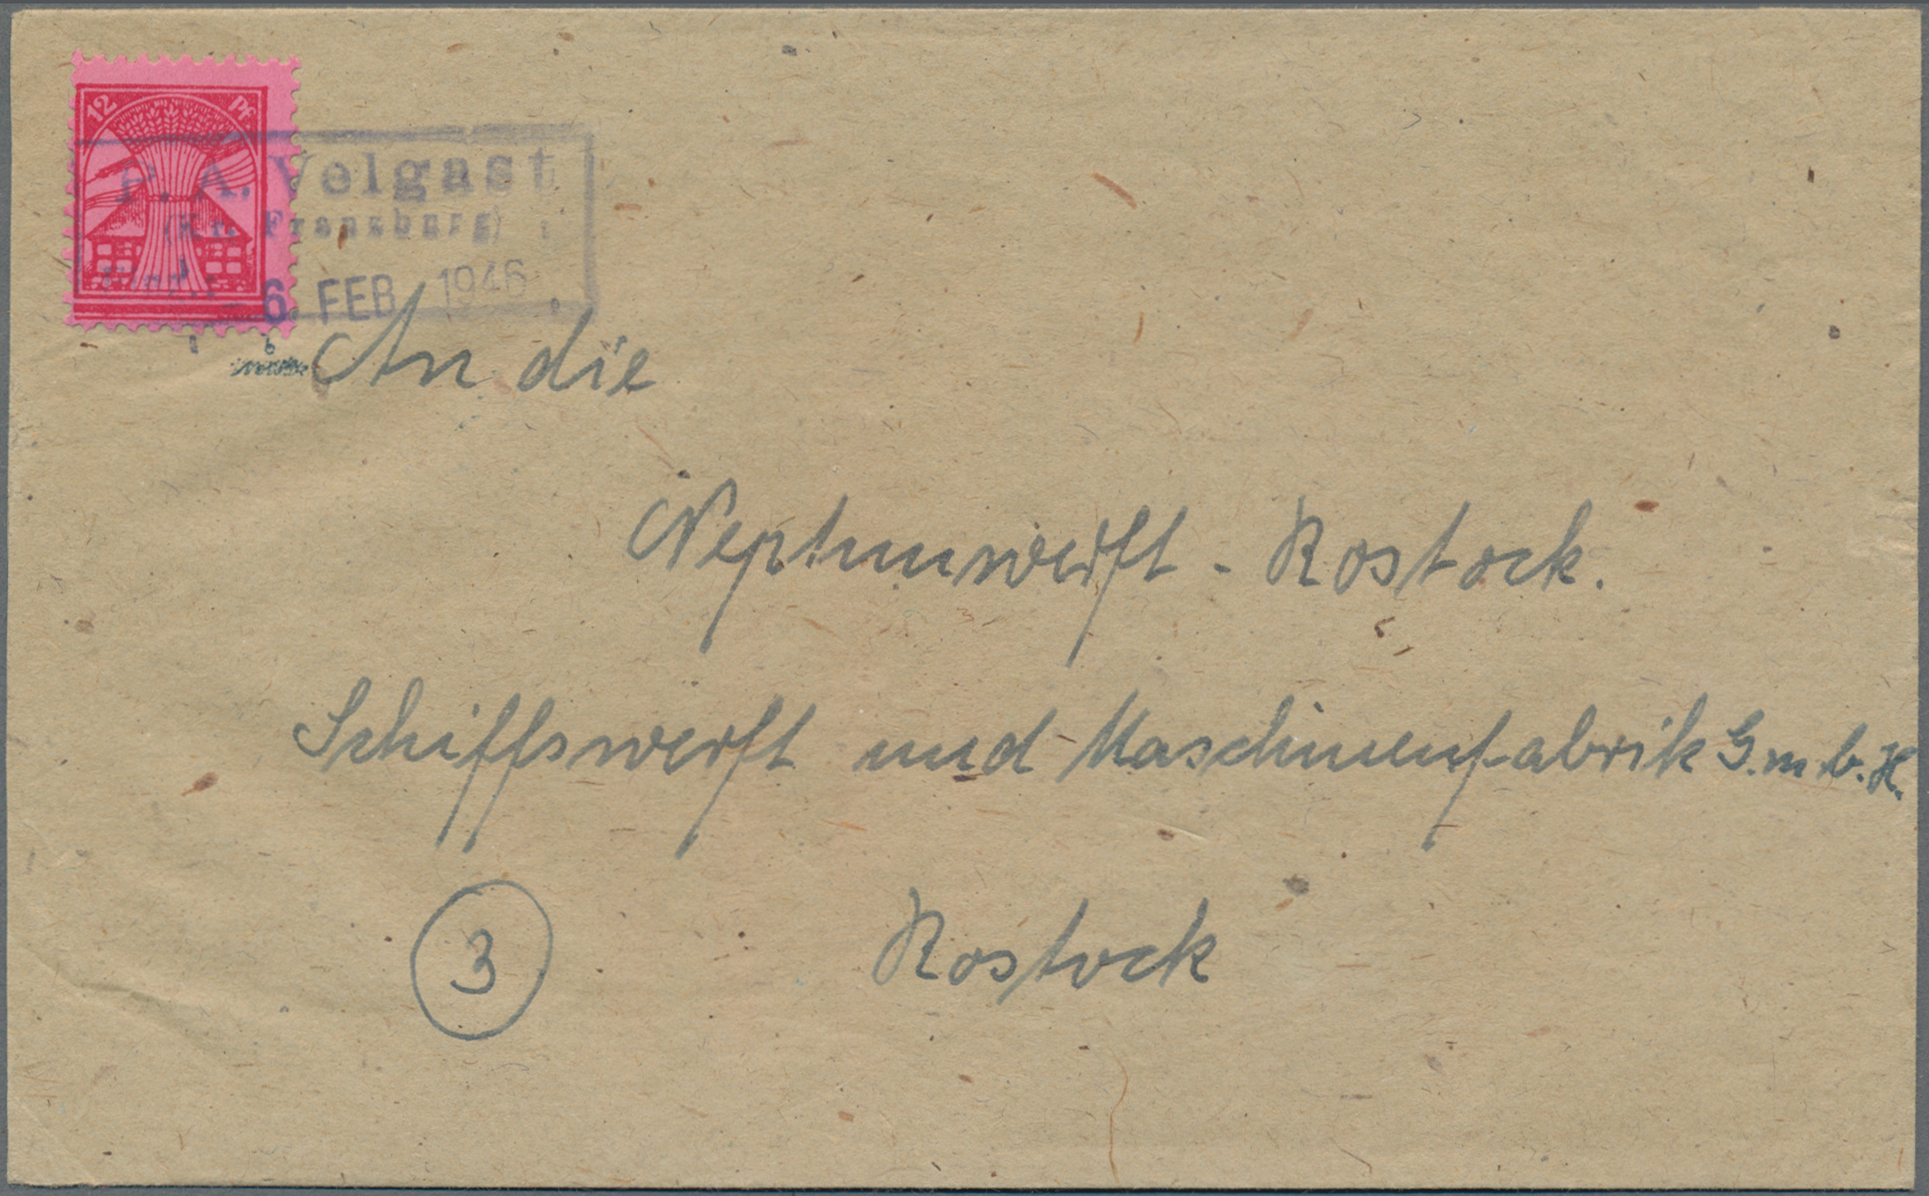 12 Pf
P. A. Velgast
(Kr. Franzburg)
6. FEB. 1946
An die
Neptunwerft - Rostock.
Schiffswerft und Maschinenfabrik G.m.b.H.
3
Rostock